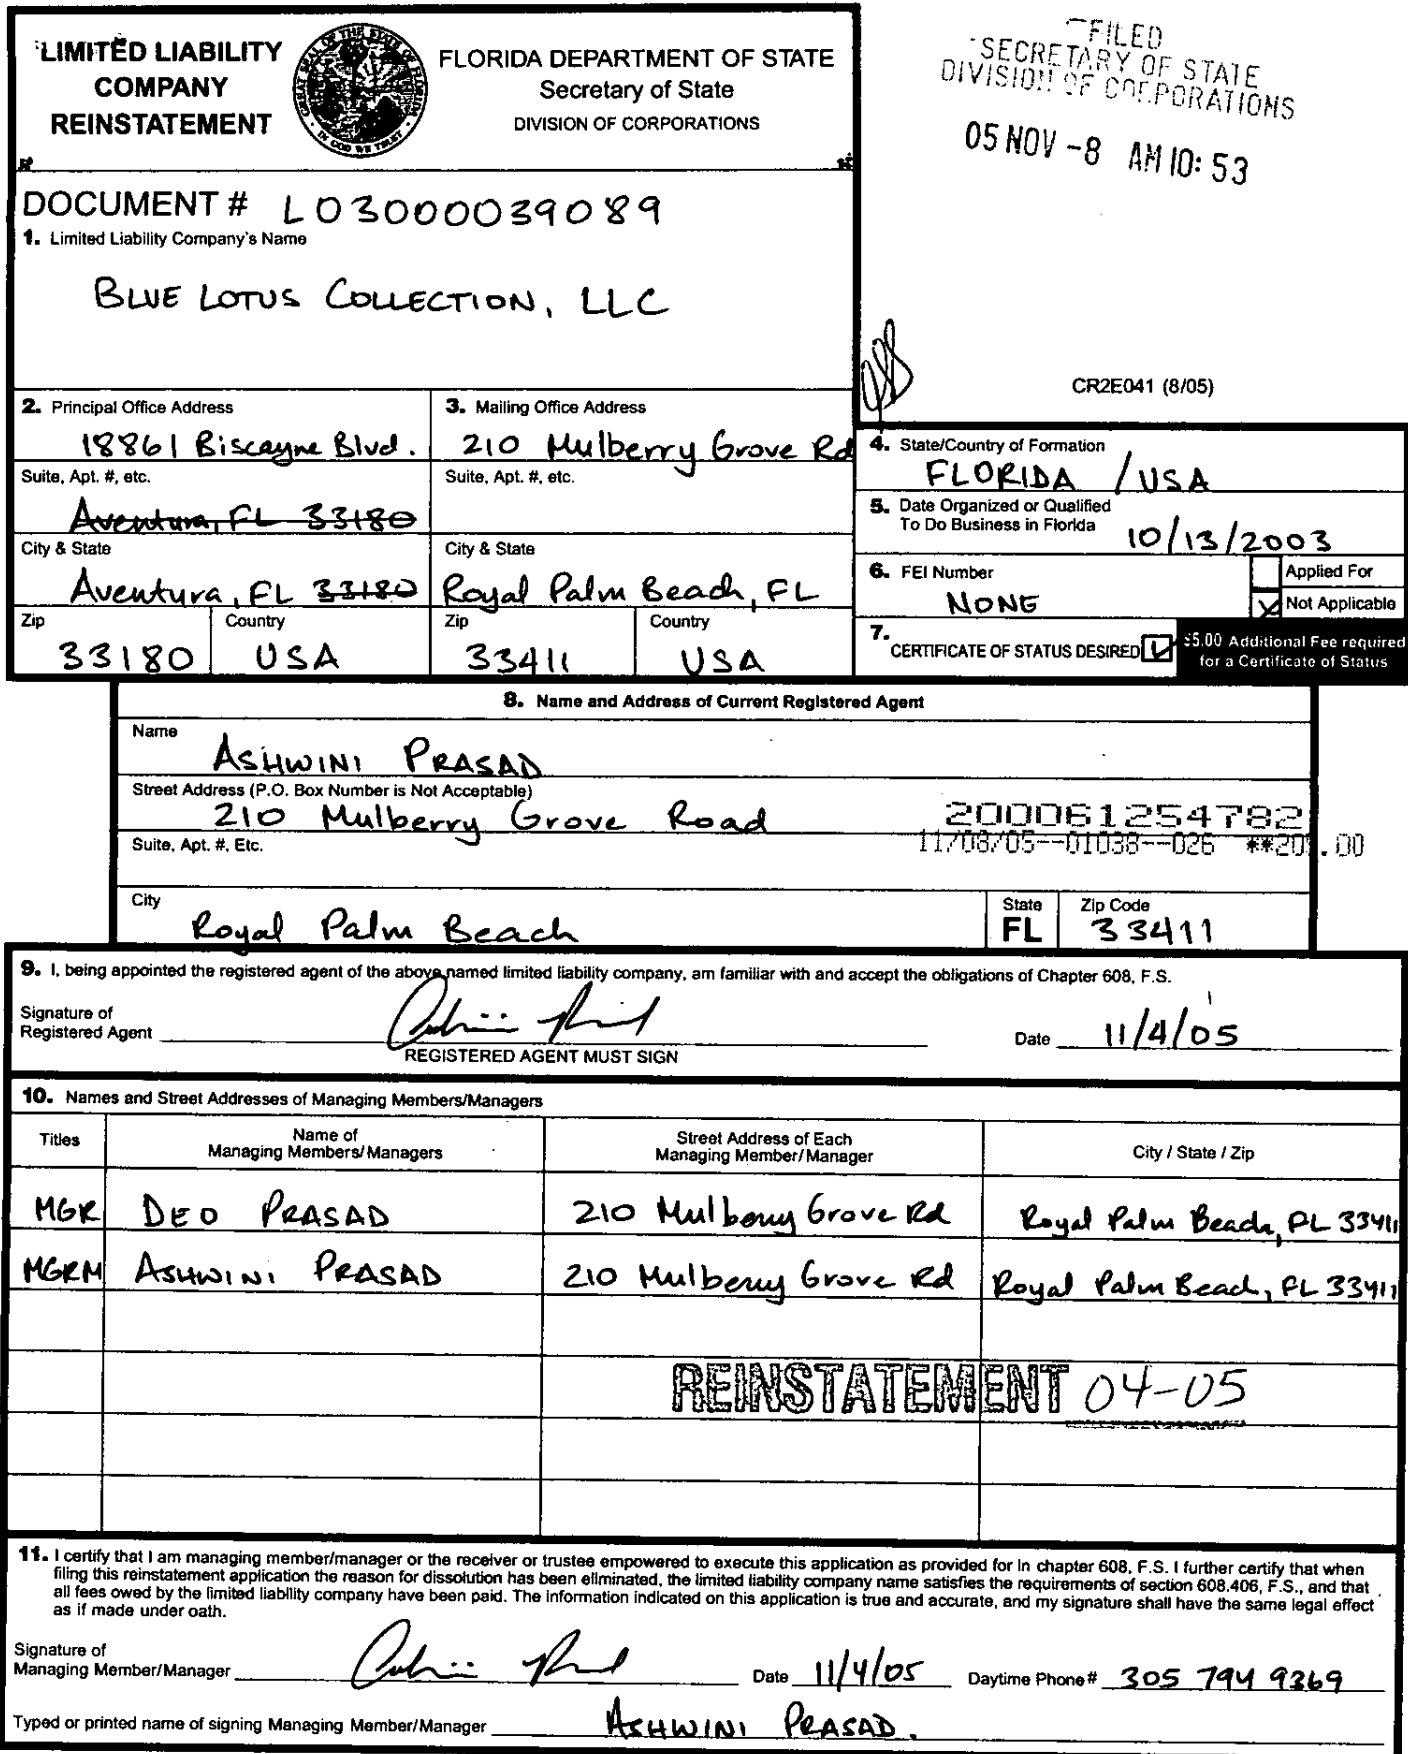 LIMITED LIABILITY
COMPANY
REINSTATEMENT
FLORIDA DEPARTMENT OF STATE
Secretary of State
DIVISION OF CORPORATIONS
FILED
SECRETARY OF STATE
DIVISION OF CORPORATIONS
05 NOV -8 AM 10: 53
DOCUMENT # L03000039089
1. Limited Liability Company's Name
BLUE LOTUS COLLECTION, LLC
CR2E041 (8/05)
2. Principal Office Address
18861 Biscayne Blvd.
Suite, Apt. #, etc.
Aventura, FL 33180
City & State
Aventura, FL 33180
Zip
33180
Country
USA
3. Mailing Office Address
210 Mulberry Grove Rd
Suite, Apt. #, etc.
City & State
Royal Palm Beach, FL
Zip
33411
Country
USA
4. State/Country of Formation
FLORIDA / USA
5. Date Organized or Qualified
To Do Business in Florida 10/13/2003
6. FEI Number
NONE
Applied For
Not Applicable
7. CERTIFICATE OF STATUS DESIRED
$5.00 Additional Fee required
for a Certificate of Status
8. Name and Address of Current Registered Agent
Name
ASHWINI PRASAD
Street Address (P.O. Box Number is Not Acceptable)
210 Mulberry Grove Road
200061254782
11/08/05--01038--026 .00
Suite, Apt. #, Etc.
City
Royal Palm Beach
State
FL
Zip Code
33411
9. I, being appointed the registered agent of the above named limited liability company, am familiar with and accept the obligations of Chapter 608, F.S.
Signature of
Registered Agent
REGISTERED AGENT MUST SIGN
Date 11/4/05
10. Names and Street Addresses of Managing Members/Managers
Titles
Name of
Managing Members/Managers
Street Address of Each
Managing Member/Manager
City / State / Zip
MGR DEO PRASAD 210 Mulberry Grove Rd Royal Palm Beach, FL 33411
MGRM ASHWINI PRASAD 210 Mulberry Grove Rd Royal Palm Beach, FL 33411
REINSTATEMENT 04-05
11. I certify that I am managing member/manager or the receiver or trustee empowered to execute this application as provided for in chapter 608, F.S. I further certify that when
filing this reinstatement application the reason for dissolution has been eliminated, the limited liability company name satisfies the requirements of section 608.406, F.S., and that
all fees owed by the limited liability company have been paid. The information indicated on this application is true and accurate, and my signature shall have the same legal effect
as if made under oath.
Signature of
Managing Member/Manager
Date 11/4/05
Daytime Phone # 305 794 9369
Typed or printed name of signing Managing Member/Manager ASHWINI PRASAD.